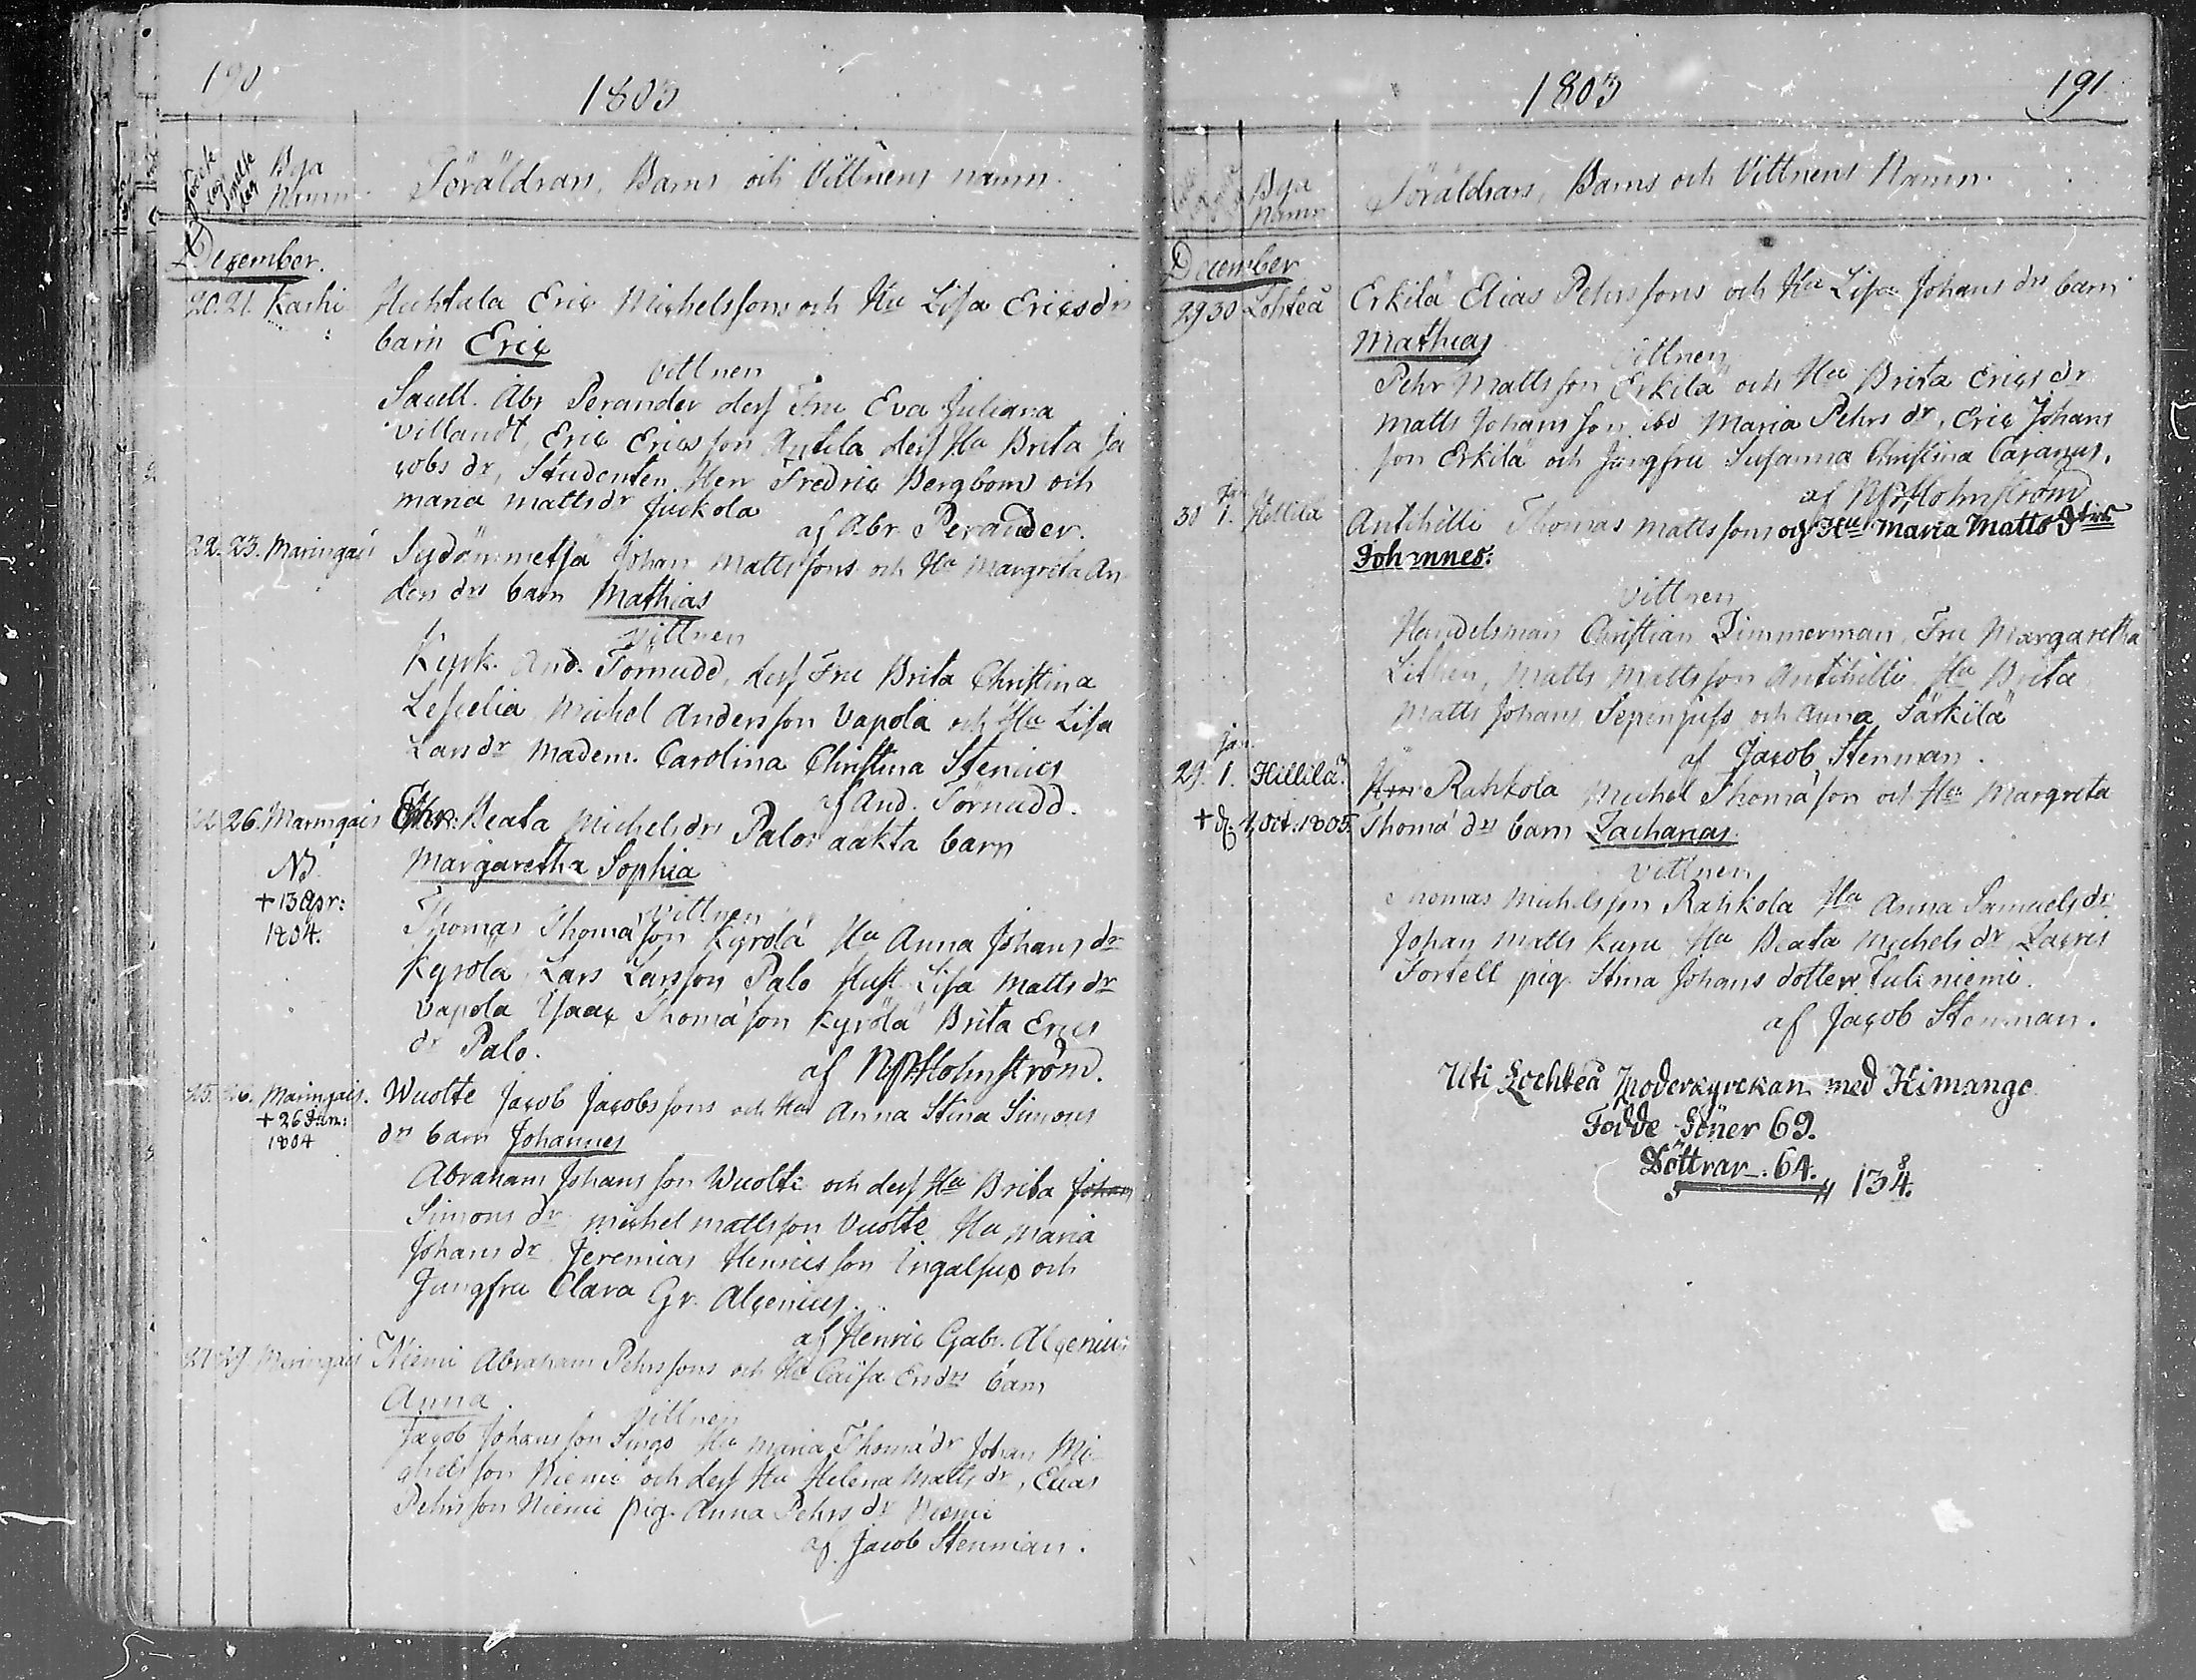 190
1803
Födelse dag
Byа Namn
Föräldrars, Barns och Vittnens namn.
December.
20. 21. Karhi Huhtala Eric Michelssons och Hu Lisa Ericsdrs
barn Eric
Vittnen
Saell. Abr Perander dess Fru Eva Juliana
Villandt, Eric Ericsson Antila dess Hu Brita Ja
cobs dr, Studenten Herr Fredric Bergbom och
maria mattsdr Juckola
af Abr. Perander.
22. 23. Maringais Sydänmetsä Johan Mattssons och Hu Margreta An
ders drs barn Mathias
Vittnen
Kyrk. And. Törnudd, dess Fru Brita Christina
Lescelia, Michel Andersson Vapola och Hu Lisa
Lars dr Madem. Carolina Christina Stenius
af And. Törnudd.
26. Maringais Beata Michelsdrs Palos aäkta barn
NB. Margaretha Sophia
+ 13 Apr:
1804.
Vittnen
Thomas Thomasson Kyrölä Hu Anna Johans dr
Kyrölä, Lars Larsson Palo Hust. Lisa Matts dr
Vapola Isaac Thomasson Kyrölä Brita Erics
dr Palo.
af NP Holmström.
25. 26. Maringais. Wuolte Jacob Jacobssons och Hu Anna Stina Simons
+ 26 Jan: 1804
drs barn Johannes
Abraham Johansson Wuolte och dess Hu Brita Johans
Simons dr michel mattsson Vuolte Hu Maria
Johans dr Jeremias Henricsson Ingalsuo och
Jungfru Clara Gr. Alcenius.
af Henric Gabr. Alcenius
27 29 Maringais Niemi Abraham Pehrssons och Hu Caisa Ersdrs barn
Anna
Vittnen
Jacob Johansson Singo Hu Maria Thomä dr Johan Mi
chelsson Niemi och dess Hu Helena Matts dr, Elias
Pehrsson Niemi pig. Anna Pehrs dr Niemi
af Jacob Stenman.
1803
191
Byа namn
Föräldrars, Barns och Vittnens Namn.
December
29 30 Lohteå Erkilä Elias Pehrssons och Hu Lisa Johans drs barn
Mathias
Vittnen
Pehr Mattsson Erkilä och Hu Brita Erics dr
Matts Johansson ibd Maria Pehrs dr, Eric Johans
son Erkilä och Jungfru Susanna Christina Cajanus.
af NP Holmström
Jan
30 1. Hillilä Antihilli Thomas Mattssons och Hu Maria Matts Dtrs
Johannes:
Vittnen
Handelsman Christian Zimmerman, Fru Margaretha
Lithen, Matts Mattsson Antihilli Hu Brita
Matts Johans Sepenjuss och Anna Särkilä
af Jacob Stenman.
jan
29. 1. Hillilä. Rahkola Michel Thomasson och Hu Margreta
+ d. 1. Oct: 1805. Thomä drs barn Zacharias.
Vittnen
Thomas Michelsson Rahkola Hu Anna Samuels dr
Johan Matts Kuru Hu Beata Michels dr Zacris
Fortell pig. Stina Johans dotter Tuliniemi.
af Jacob Stenman.
Uti Lochteå Moderkyrckan med Himango
Födde Söner 69.
Döttrar. 64. 134.